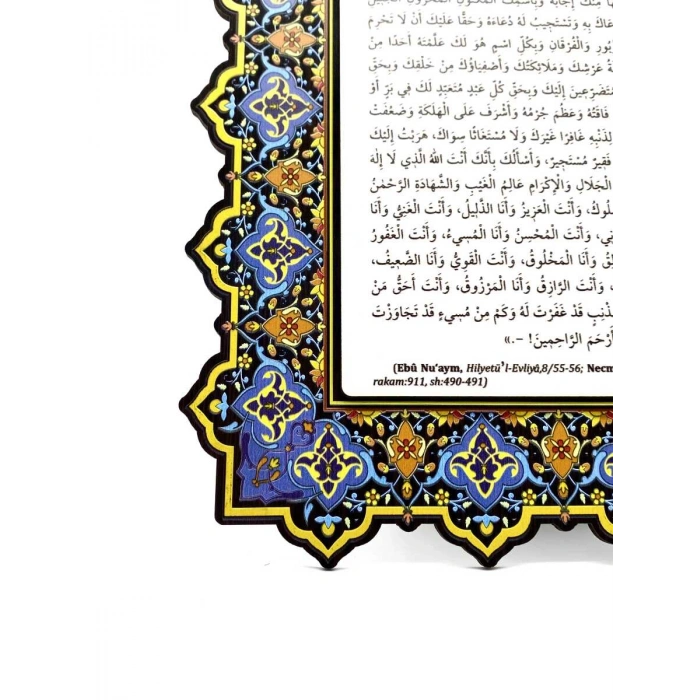 هَا مِنْكَ إِجَابَةً وَبِاسْمِكَ الْمَكْنُونِ الْمَخْزُونِ
عَاكَ بِهِ وَتَسْتَجِيبُ لَهُ دُعَاءَهُ وَحَقًّا عَلَيْكَ أَنْ لَا تَحْرِمَ
بُورِ وَالْفُرْقَانِ وَبِكُلِّ اسْمٍ هُوَ لَكَ عَلَّمْتَهُ أَحَدًا مِنْ
ةُ عَرْشِكَ وَمَلَائِكَتُكَ وَأَصْفِيَاؤُكَ مِنْ خَلْقِكَ وَبِحَقِّ
مُتَضَرِّعِينَ إِلَيْكَ وَبِحَقِّ كُلِّ عَبْدٍ مُتَعَبِّدٍ لَكَ فِي بَرٍّ أَوْ
فَاقَتُهُ وَعَظُمَ جُرْمُهُ وَأَشْرَفَ عَلَى الْهَلَكَةِ وَضَعُفَتْ
لِذَنْبِهِ غَافِرًا غَيْرَكَ وَلَا مُسْتَغَاثًا سِوَاكَ، هَرَبْتُ إِلَيْكَ
فَقِيرٌ مُسْتَجِيرٌ، وَأَسْأَلُكَ بِأَنَّكَ أَنْتَ اللهُ الَّذِي لَا إِلٰهَ
الْجَلَالِ وَالْإِكْرَامِ عَالِمُ الْغَيْبِ وَالشَّهَادَةِ الرَّحْمٰنُ
لُوكُ، وَأَنْتَ الْعَزِيزُ وَأَنَا الذَّلِيلُ، وَأَنْتَ الْغَنِيُّ وَأَنَا
نِي، وَأَنْتَ الْمُحْسِنُ وَأَنَا الْمُسِيءُ، وَأَنْتَ الْغَفُورُ
لِقُ وَأَنَا الْمَخْلُوقُ، وَأَنْتَ الْقَوِيُّ وَأَنَا الضَّعِيفُ،
، وَأَنْتَ الرَّازِقُ وَأَنَا الْمَرْزُوقُ، وَأَنْتَ أَحَقُّ مَنْ
ذْنِبٍ قَدْ غَفَرْتَ لَهُ وَكَمْ مِنْ مُسِيءٍ قَدْ تَجَاوَزْتَ
أَرْحَمَ الرَّاحِمِينَ! -.»
(Ebû Nu‘aym, Hilyetü’l-Evliyâ,8/55-56; Necm
rakam:911, sh:490-491)